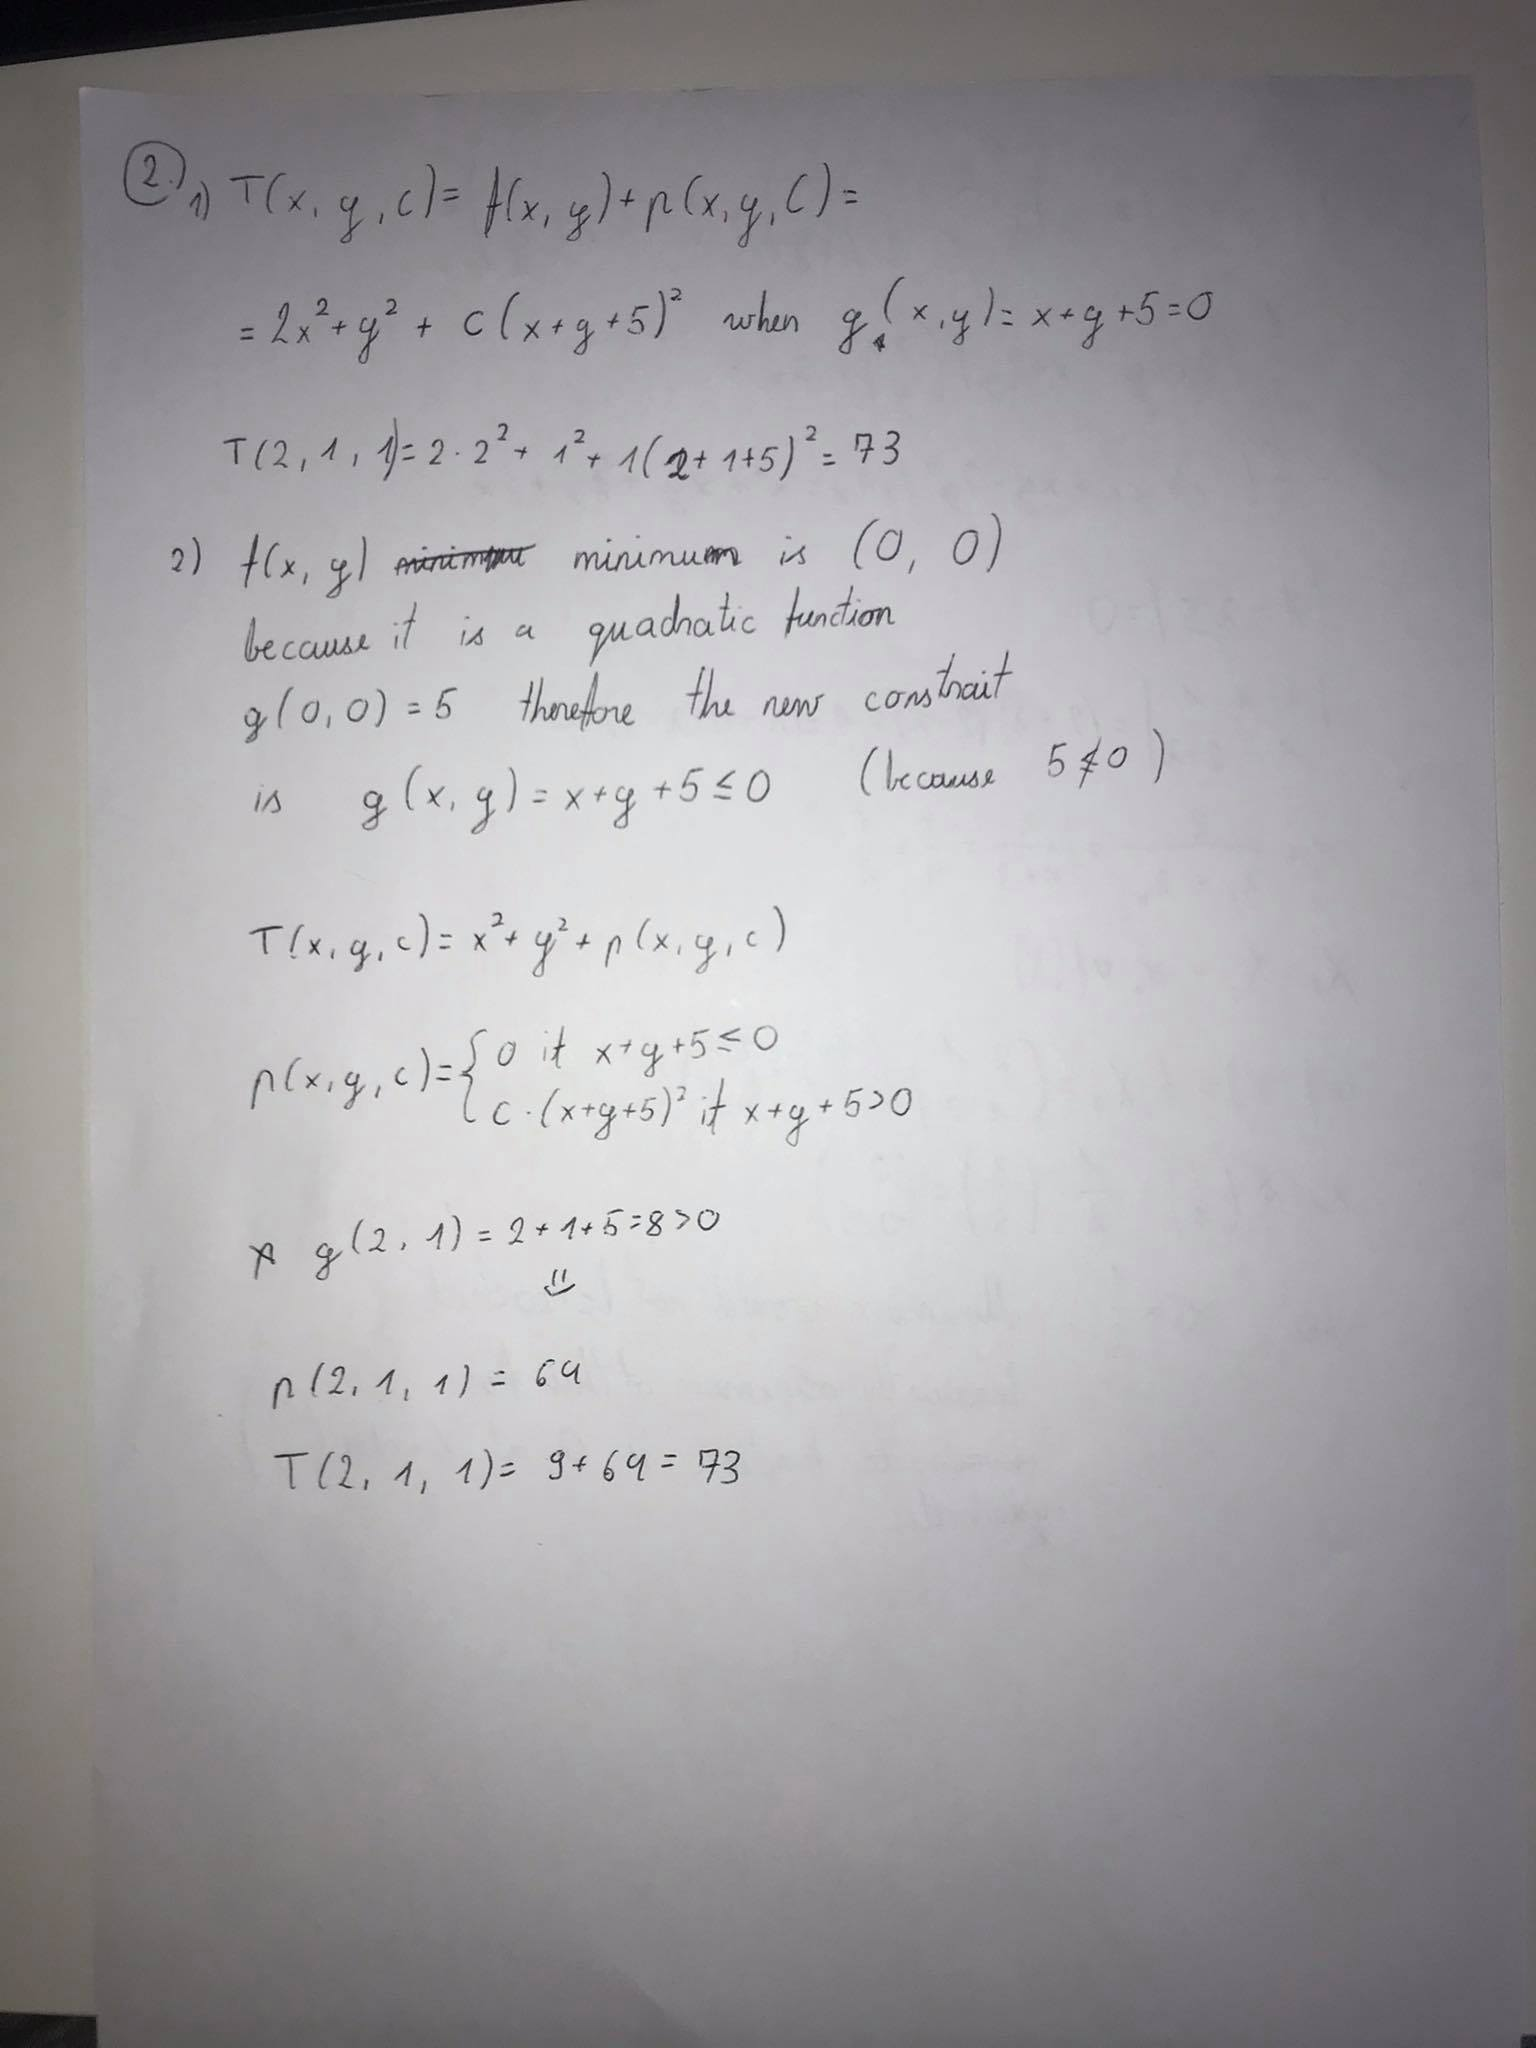 2.) 1) T(x, y, c) = f(x, y) + p(x, y, c) =
= 2x² + y² + c(x+y+5)² when g(x, y) = x+y+5=0
T(2, 1, 1) = 2·2² + 1² + 1(2+1+5)² = 73
2) f(x, y) minimum is (0, 0)
because it is a quadratic function
g(0, 0) = 5 therefore the new constrait
is g(x, y) = x+y+5≤0 (because 5≰0)
T(x, y, c) = x² + y² + p(x, y, c)
p(x, y, c) = { 0 if x+y+5≤0
c·(x+y+5)² if x+y+5>0
g(2, 1) = 2+1+5=8>0
⇓
p(2, 1, 1) = 64
T(2, 1, 1) = 9+64 = 73